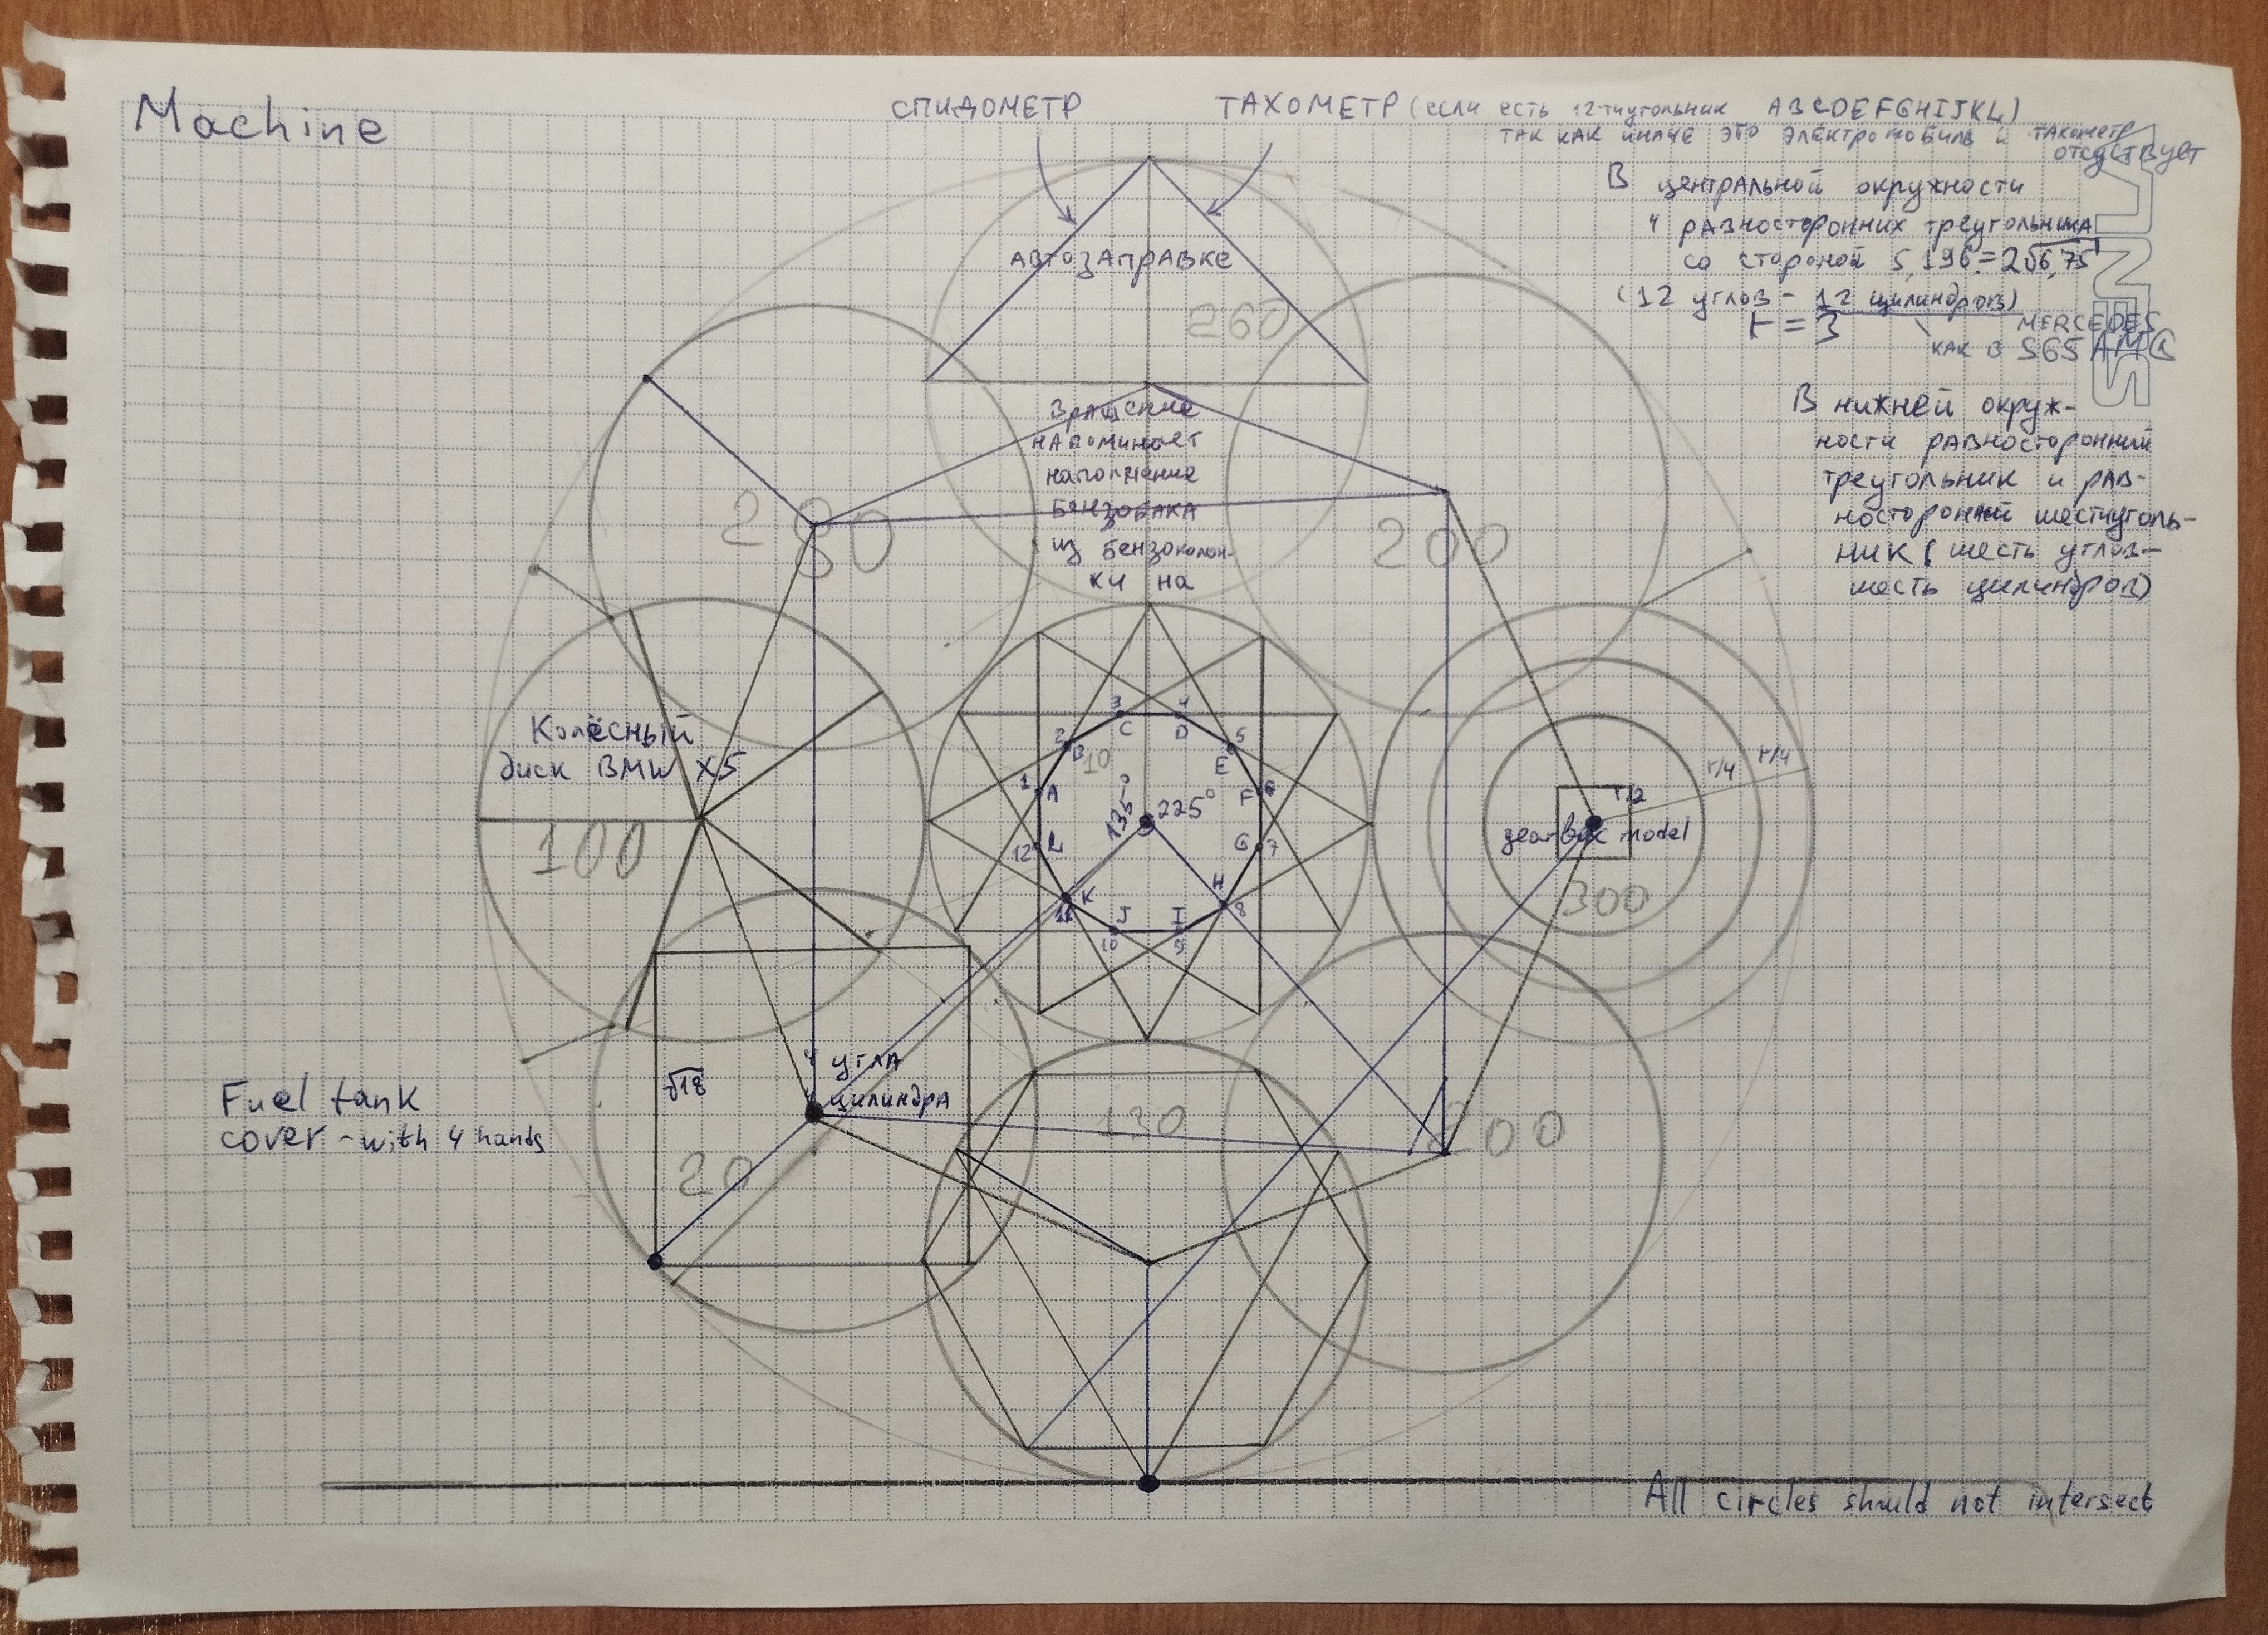 Machine
СПИДОМЕТР
ТАХОМЕТР (если есть 12-тиугольник ABCDEFGHIJKL)
ТАК КАК ИНАЧЕ ЭТО ЭЛЕКТРОМОБИЛЬ И ТАХОМЕТР
отсуствует
В центральной окружности
4 равносторонних треугольника
со стороной 5,196 = 2√6,75
(12 углов - 12 цилиндров)
r = 3
MERCEDES
КАК В S65 AMG
В нижней окруж-
ности равносторонний
треугольник и рав-
носторонний шестиуголь-
ник (шесть углов-
шесть цилиндров)
АВТОЗАПРАВКЕ
260
Вращение
напоминает
наполнение
бензобака
из бензоколон-
ки на
280
200
Колёсный
диск BMW X5
100
3 4
C D
2 5
B E
10
1 A F 6
135° 225°
12 L G 7
K H
11 8
J I
10 9
r/4 r/4
r/2
gearbox model
300
√18
4 угла
цилиндра
20
130
200
Fuel tank
cover - with 4 hands
All circles should not intersect